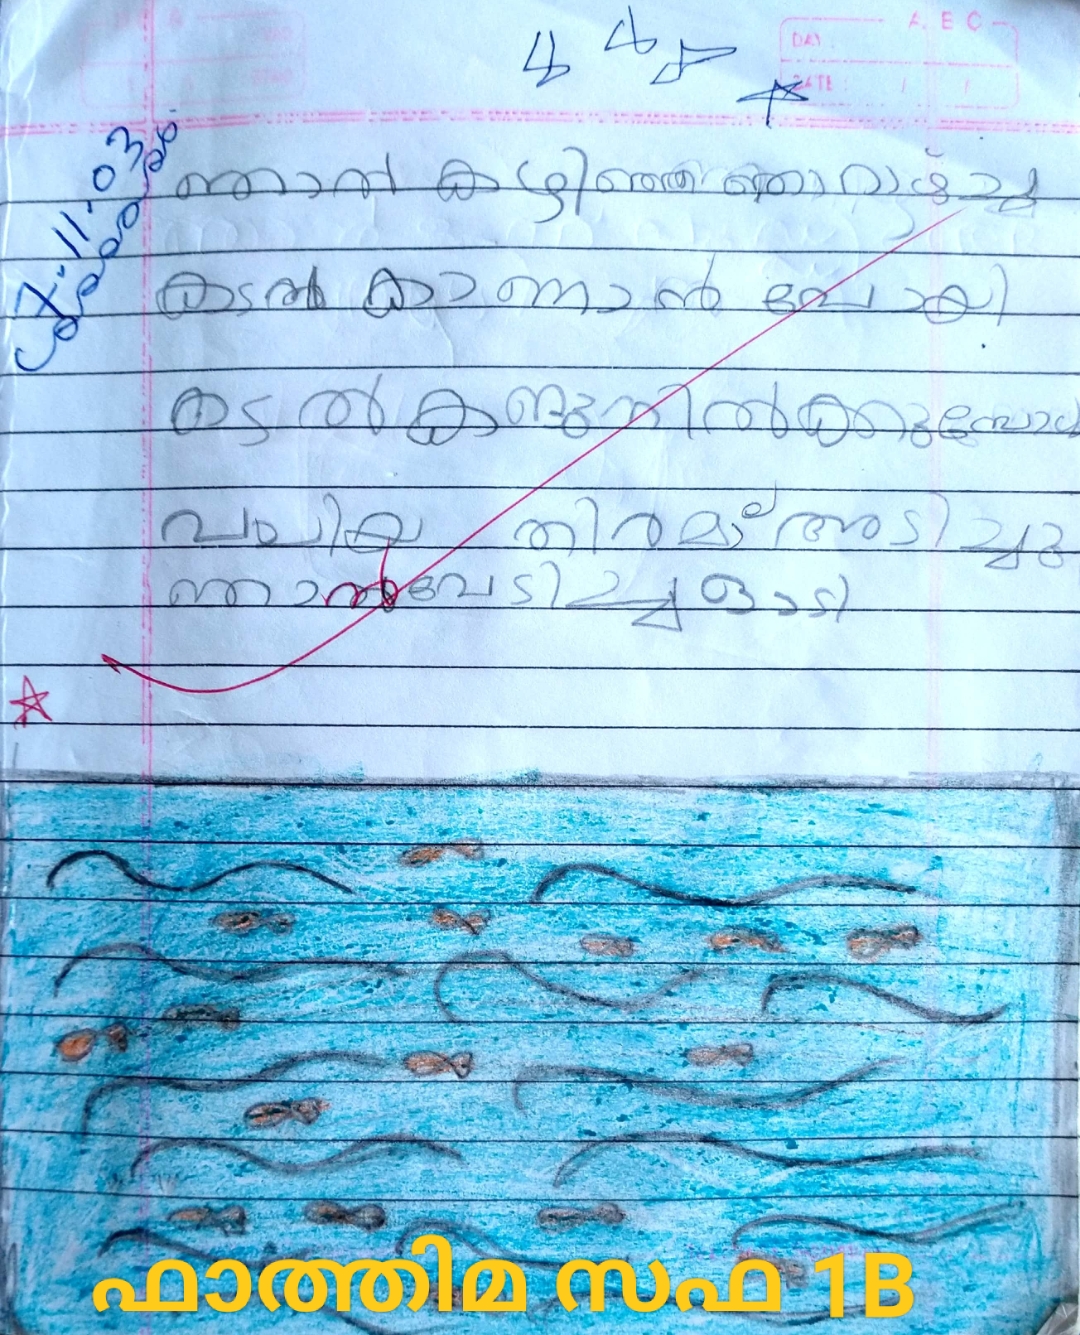 A B C
DAY
DATE : / /
ഞാൻ കഴിഞ്ഞ ഞാറാഴ്ച്ച
കടൽ കാണാൻ പോയി
കടൽ കണ്ടുനിൽക്കുമ്പോൾ
വലിയ തിരമാല് അടിച്ചു
ഞാൻ പേടിച്ച് ഓടി
ഫാത്തിമ സഫ 1B